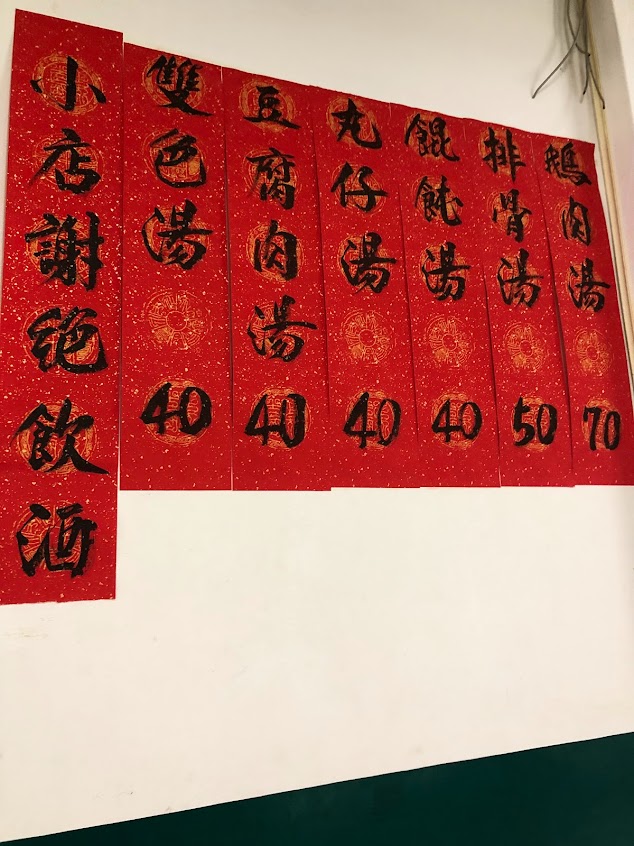 鵝肉湯 70
排骨湯 50
餛飩湯 40
丸仔湯 40
豆腐肉湯 40
雙色湯 40
小店謝絕飲酒